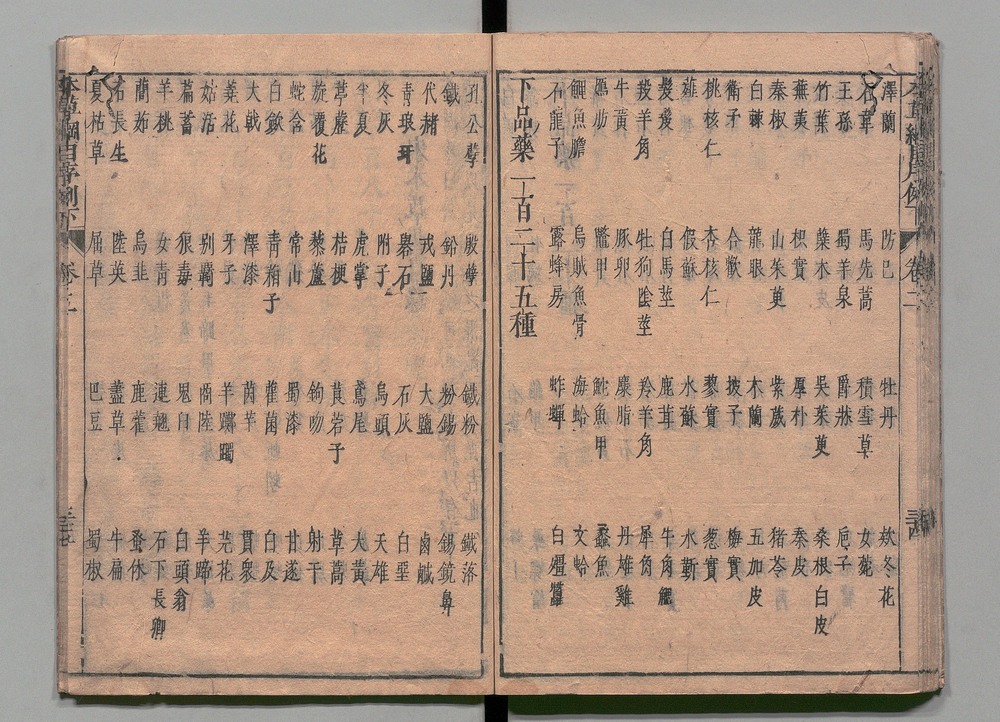 澤蘭 防已 牡丹 款冬花
石韋 馬先蒿 積雪草 女菀
王孫 蜀羊泉 爵牀 梔子
竹葉 蘗木 吳茱萸 桑根白皮
蕪荑 枳實 厚朴 秦皮
秦椒 山茱萸 紫葳 豬苓
白棘 龍眼 木蘭 五加皮
衛矛 合歡 彼子 梅實
桃核仁 杏核仁 蓼實 葱實
薤 假蘇 水蘇 水蘄
髮髲 白馬莖 鹿茸 牛角䚡
羖羊角 牡狗陰莖 羚羊角 犀角
牛黃 豚卵 麋脂 丹雄雞
鴈肪 鱉甲 鮀魚甲 蠡魚
鯉魚膽 烏賊魚骨 海蛤 文蛤
石龍子 露蜂房 蚱蟬 白殭蠶
下品藥一百二十五種
本草綱目序例下 卷二
孔公孼 殷孼 鐵粉 鐵落
鐵 鉛丹 粉錫 錫鏡鼻
代赭 戎鹽 大鹽 鹵鹹
青琅玕 礜石 石灰 白堊
冬灰 附子 烏頭 天雄
半夏 虎掌 鳶尾 大黃
葶藶 桔梗 莨菪子 草蒿
旋覆花 藜蘆 鉤吻 射干
蛇含 常山 蜀漆 甘遂
白斂 青葙子 雚菌 白及
大戟 澤漆 茵芋 貫衆
蕘花 牙子 羊躑躅 芫花
姑活 別羈 商陸 羊蹄
萹蓄 狼毒 鬼臼 白頭翁
羊桃 女青 連翹 石下長卿
䕡茹 烏韭 鹿藿 蚤休
石長生 陸英 藎草 牛扁
夏枯草 屈草 巴豆 蜀椒
本草綱目序例下 卷二